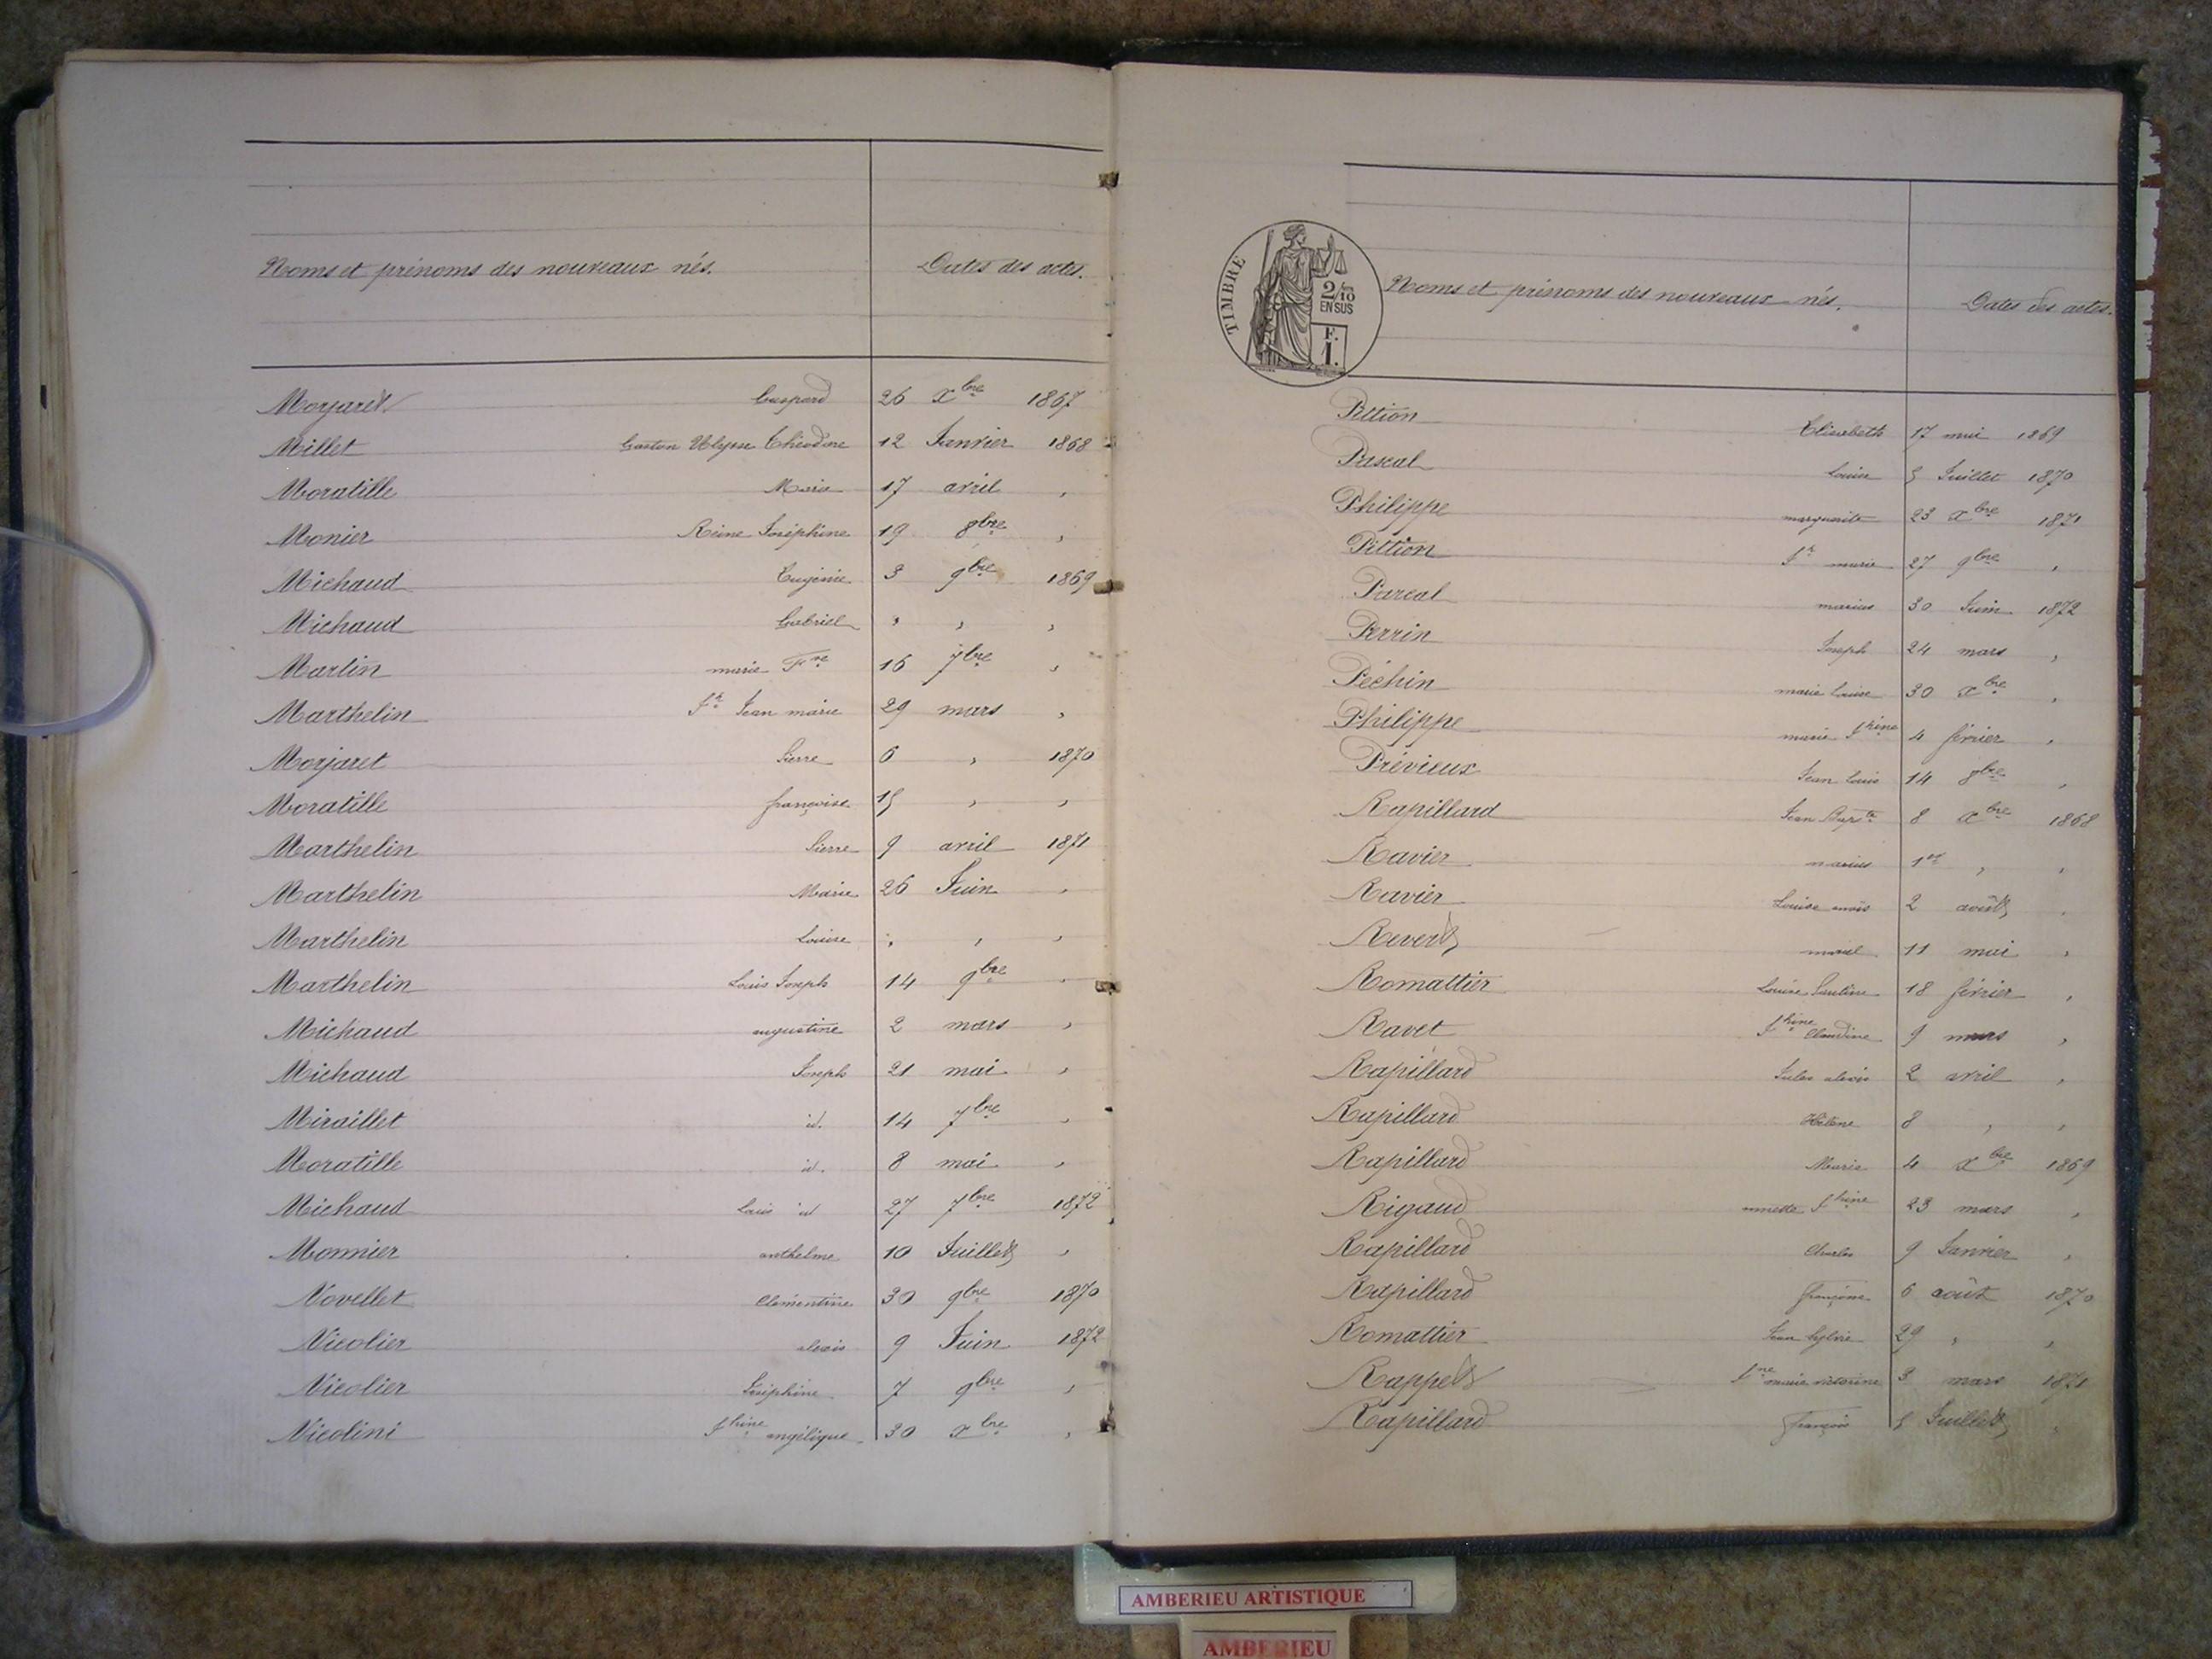 Noms et prénoms des nouveaux nés. Dates des actes.
Morjaret Gaspard 26 Xbre 1867
Millet Gaston Ulysse Théodore 12 Janvier 1868
Moratille Marie 17 avril "
Monier Reine Joséphine 19 8bre "
Michaud Eugénie 3 9bre 1869
Michaud Gabriel " " "
Martin marie Fne 16 7bre "
Marthelin Jh Jean marie 29 mars "
Morjaret Pierre 6 " 1870
Moratille françoise 15 " "
Marthelin Pierre 9 avril 1871
Marthelin Marie 26 Juin "
Marthelin Louise " " "
Marthelin Louis Joseph 14 9bre "
Michaud augustine 2 mars "
Michaud Joseph 21 mai "
Miraillet id. 14 7bre "
Moratille id. 8 mai "
Michaud Louis id 27 7bre 1872
Monnier anthelme 10 Juillet "
Novellet Clémentine 30 9bre 1870
Nicolier alexis 9 Juin 1872
Nicolier Joséphine 7 9bre "
Nicolini Jhine angélique 30 Xbre "
TIMBRE
2/10
EN SUS
F.
1.
Noms et prénoms des nouveaux nés. Dates des actes.
Pittion Elisabeth 17 mai 1869
Pascal Louise 5 Juillet 1870
Philippe marguerite 23 Xbre 1871
Pittion Jh marie 27 9bre "
Pascal marius 30 Juin 1872
Perrin Joseph 24 mars "
Péchin marie Louise 30 Xbre "
Philippe marie Jhine 4 février "
Prévieux Jean Louis 14 8bre "
Rapillard Jean Bapte 8 Xbre 1868
Ravier marius 1er " "
Ravier Louise 2 août "
Revert 11 mai "
Romattier Louise Pauline 18 février "
Ravet Jhine Claudine 9 mars "
Rapillard Jules alexis 2 avril "
Rapillard Hélène 8 " "
Rapillard Marie 4 Xbre 1869
Rigaud annette Jhine 23 mars "
Rapillard Charles 9 Janvier "
Rapillard françoise 6 août 1870
Romattier Jean Sylvie 29 " "
Rappet marie victorine 3 mars 1871
Rapillard françois 5 Juillet "
AMBERIEU ARTISTIQUE
AMBERIEU